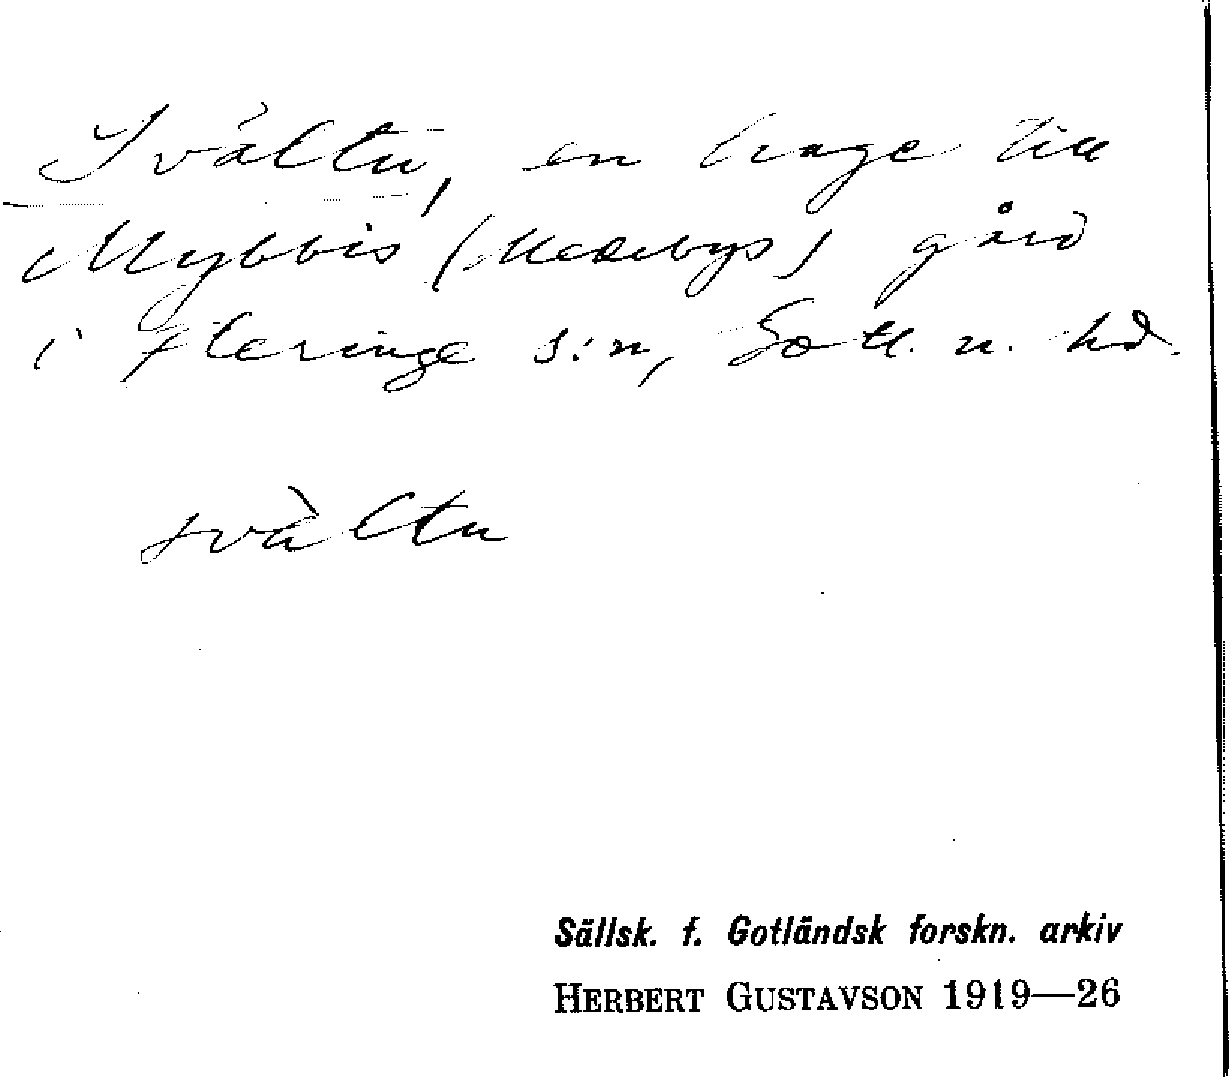 Svàltu, en hage till
Mybbis (Medebys) gård
i Fleringe s:n, Gotl. n. hd.
svàltu
Sällsk. f. Gotländsk forskn. arkiv
HERBERT GUSTAVSON 1919—26